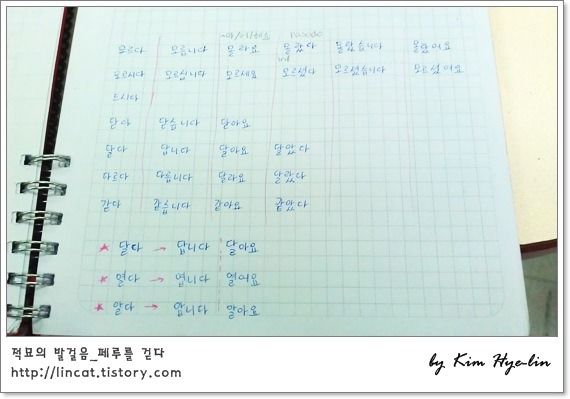 ~아/어/해요 passado
모르다 모릅니다 몰라요 몰랐다 몰랐습니다 몰랐어요
모르시다 모르십니다 모르세요 모르셨다 모르셨습니다 모르셨어요
드시다
닫다 닫습니다 닫아요
달다 답니다 달아요 달았다
다르다 다릅니다 달라요 달랐다
같다 같습니다 같아요 같았다
* 달다 → 답니다 달아요
* 열다 → 엽니다 열어요
* 알다 → 압니다 알아요
적묘의 발걸음_페루를 걷다
by Kim Hye-lin
http://lincat.tistory.com